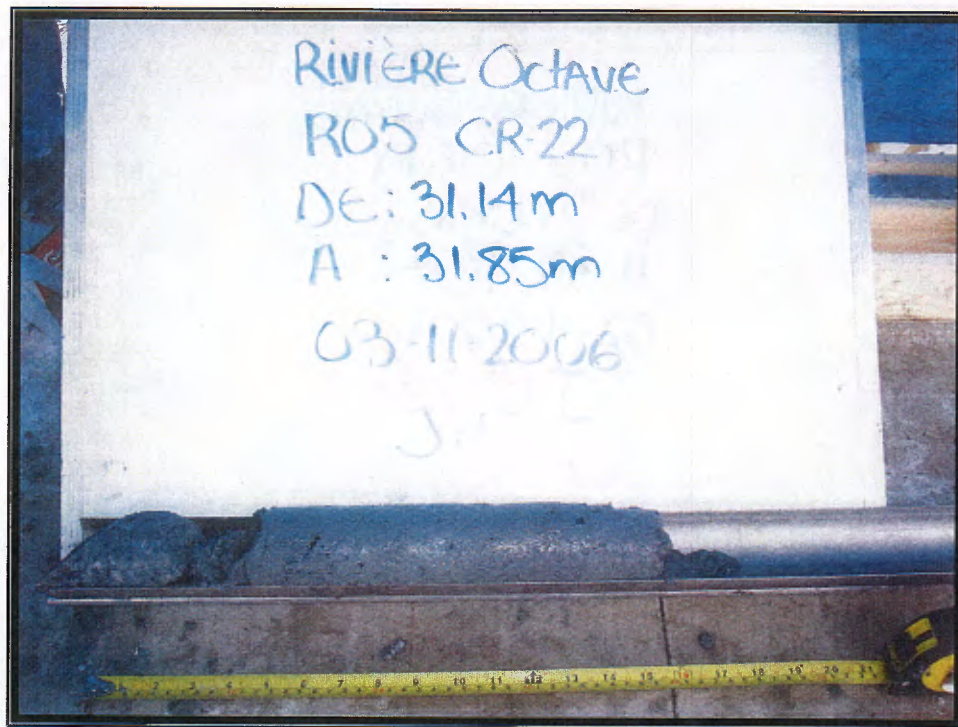 RIVIÈRE OCTAVE
RO5 CR-22
DE: 31.14m
A : 31.85m
03-11-2006
2 3 4 6 7 8 9 10 11 13 14 15 17 18 19 20 21